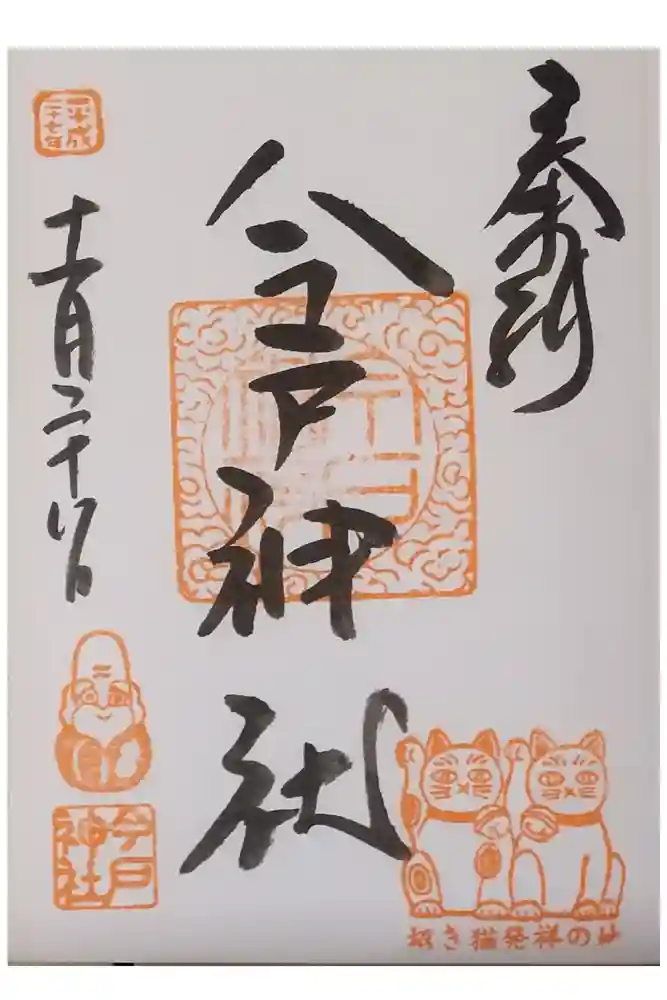 奉拝
今戸神社
平成
二十七年
十一月二十八日
今戸
神社
招き猫発祥の地